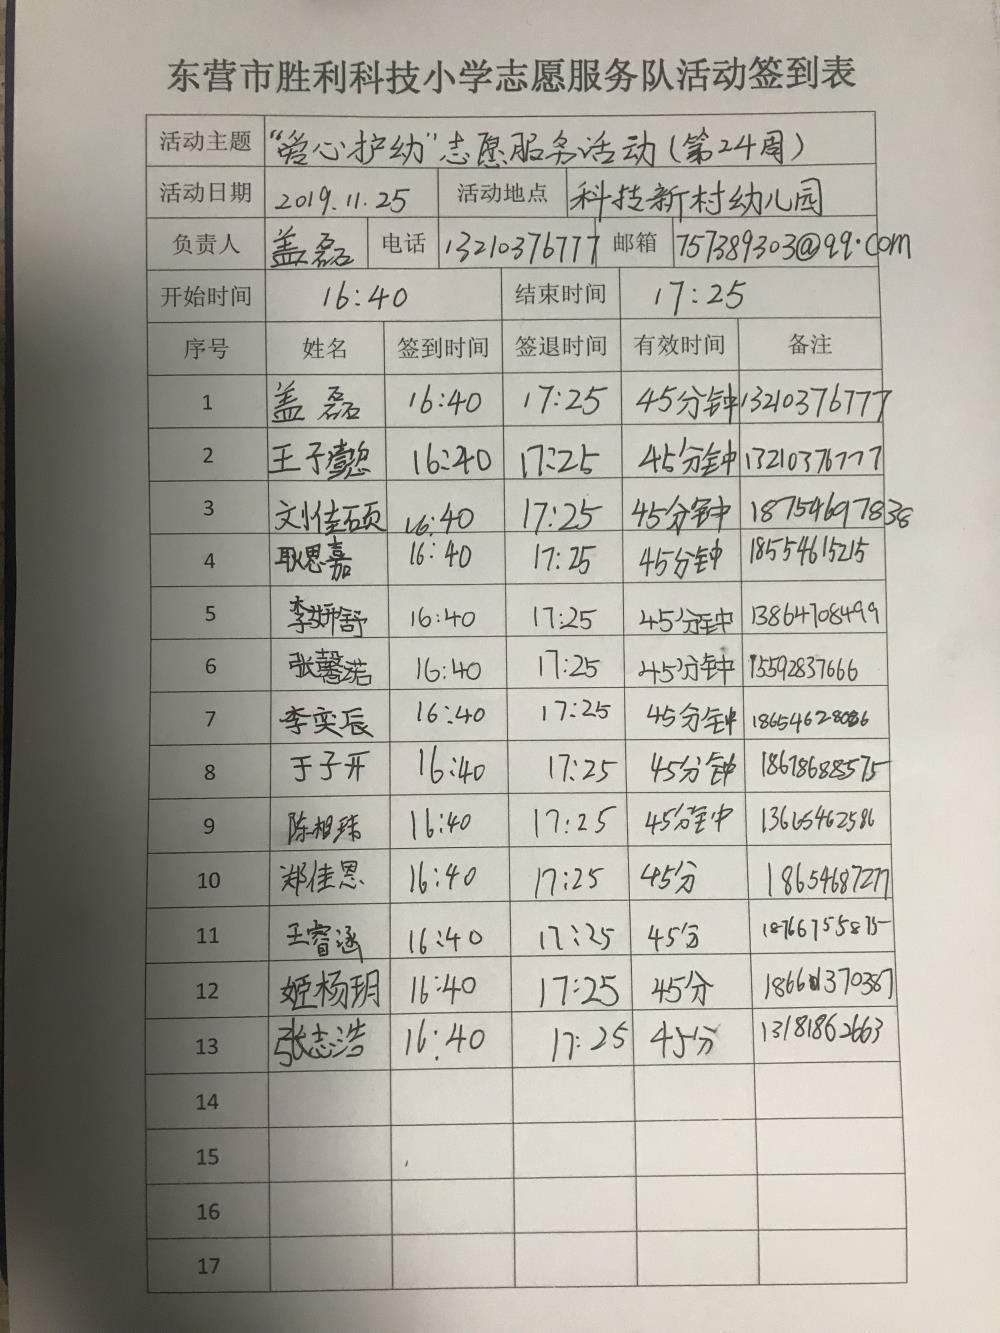 东营市胜利科技小学志愿服务队活动签到表
活动主题 “爱心护幼”志愿服务活动（第24周）
活动日期 2019.11.25 活动地点 科技新村幼儿园
负责人 盖磊 电话 13210376777 邮箱 757389303@qq.com
开始时间 16:40 结束时间 17:25
序号 姓名 签到时间 签退时间 有效时间 备注
1 盖磊 16:40 17:25 45分钟 13210376777
2 王子懿 16:40 17:25 45分钟 13210376777
3 刘佳硕 16:40 17:25 45分钟 18754697838
4 耿思嘉 16:40 17:25 45分钟 18554615215
5 李妍舒 16:40 17:25 45分钟 13864708499
6 张馨诺 16:40 17:25 45分钟 15592837666
7 李奕辰 16:40 17:25 45分钟 18654628086
8 于子开 16:40 17:25 45分钟 18678688575
9 16:40 17:25 45分钟 13665462586
10 郑佳恩 16:40 17:25 45分 18654687277
11 王睿涵 16:40 17:25 45分 18766755875
12 姬杨玥 16:40 17:25 45分
13 张志浩 16:40 17:25 45分 13181862663
14
15
16
17